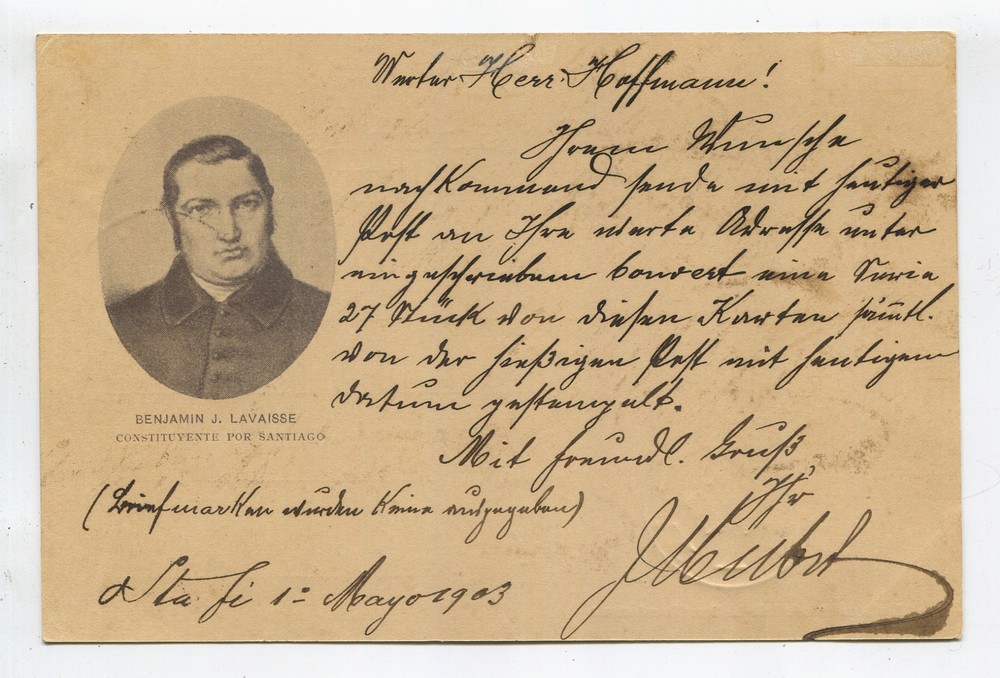 Werter Herr Hoffmann!
Ihrem Wunsche
nachkommend sende mit heutiger
Post an Ihre werte Adresse unter
eingeschriebem Convert eine Serie
27 Stück von diesen Karten sämtl.
von der hießigen Post mit heutigem
datum gestempelt.
Mit freundl. Gruß
Ihr
(Briefmarken wurden Keine ausgegeben)
Sta Fé 1º Mayo 1903
BENJAMIN J. LAVAISSE
CONSTITUYENTE POR SANTIAGO